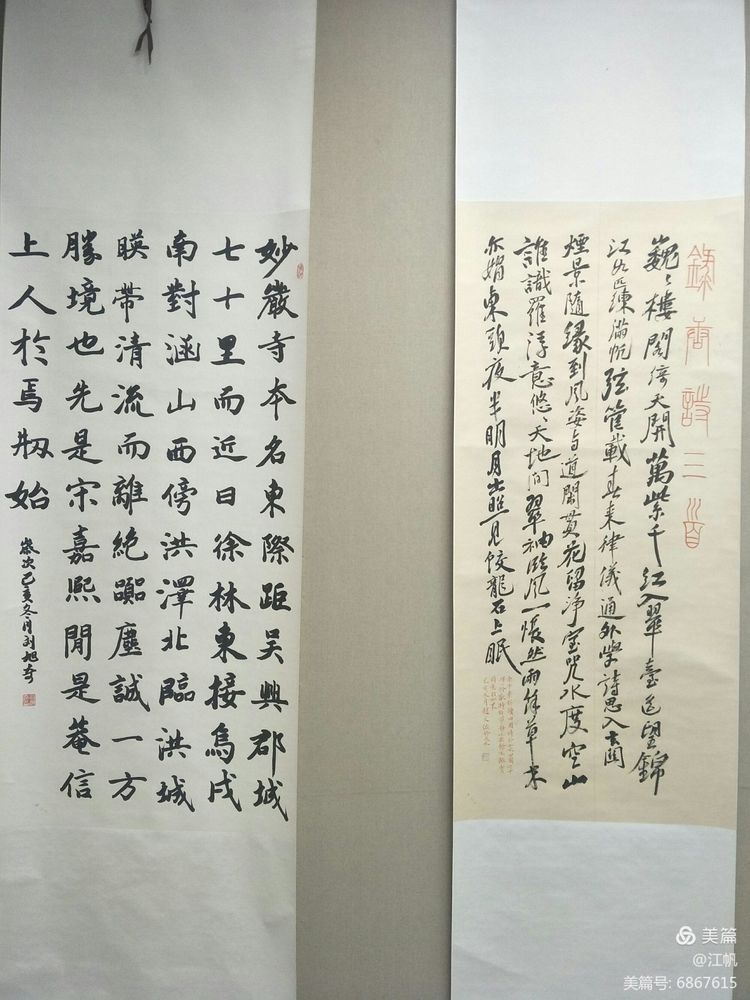 詩三首
巍〻樓閣倚天開萬紫千红入翠臺遥望錦
江如匹練滿帆弦管載春来律儀通外學詩思入玄関
煙景隨緣到風姿与道閑貫花留净室咒水度空山
誰識羅浮意悠〻天地间翠袖臨风一悵然雨餘草木
亦娟東頭夜半明月出照見蛟龍石上眠
妙嚴寺本名東際距吴興郡城
七十里而近曰徐林東接烏戍
南對涵山西傍洪澤北臨洪城
暎帶清流而離絶囂塵誠一方
勝境也先是宋嘉熙間是菴信
上人於焉刱始
歲次己亥冬月刘旭奇
美篇
@江帆
美篇号: 6867615